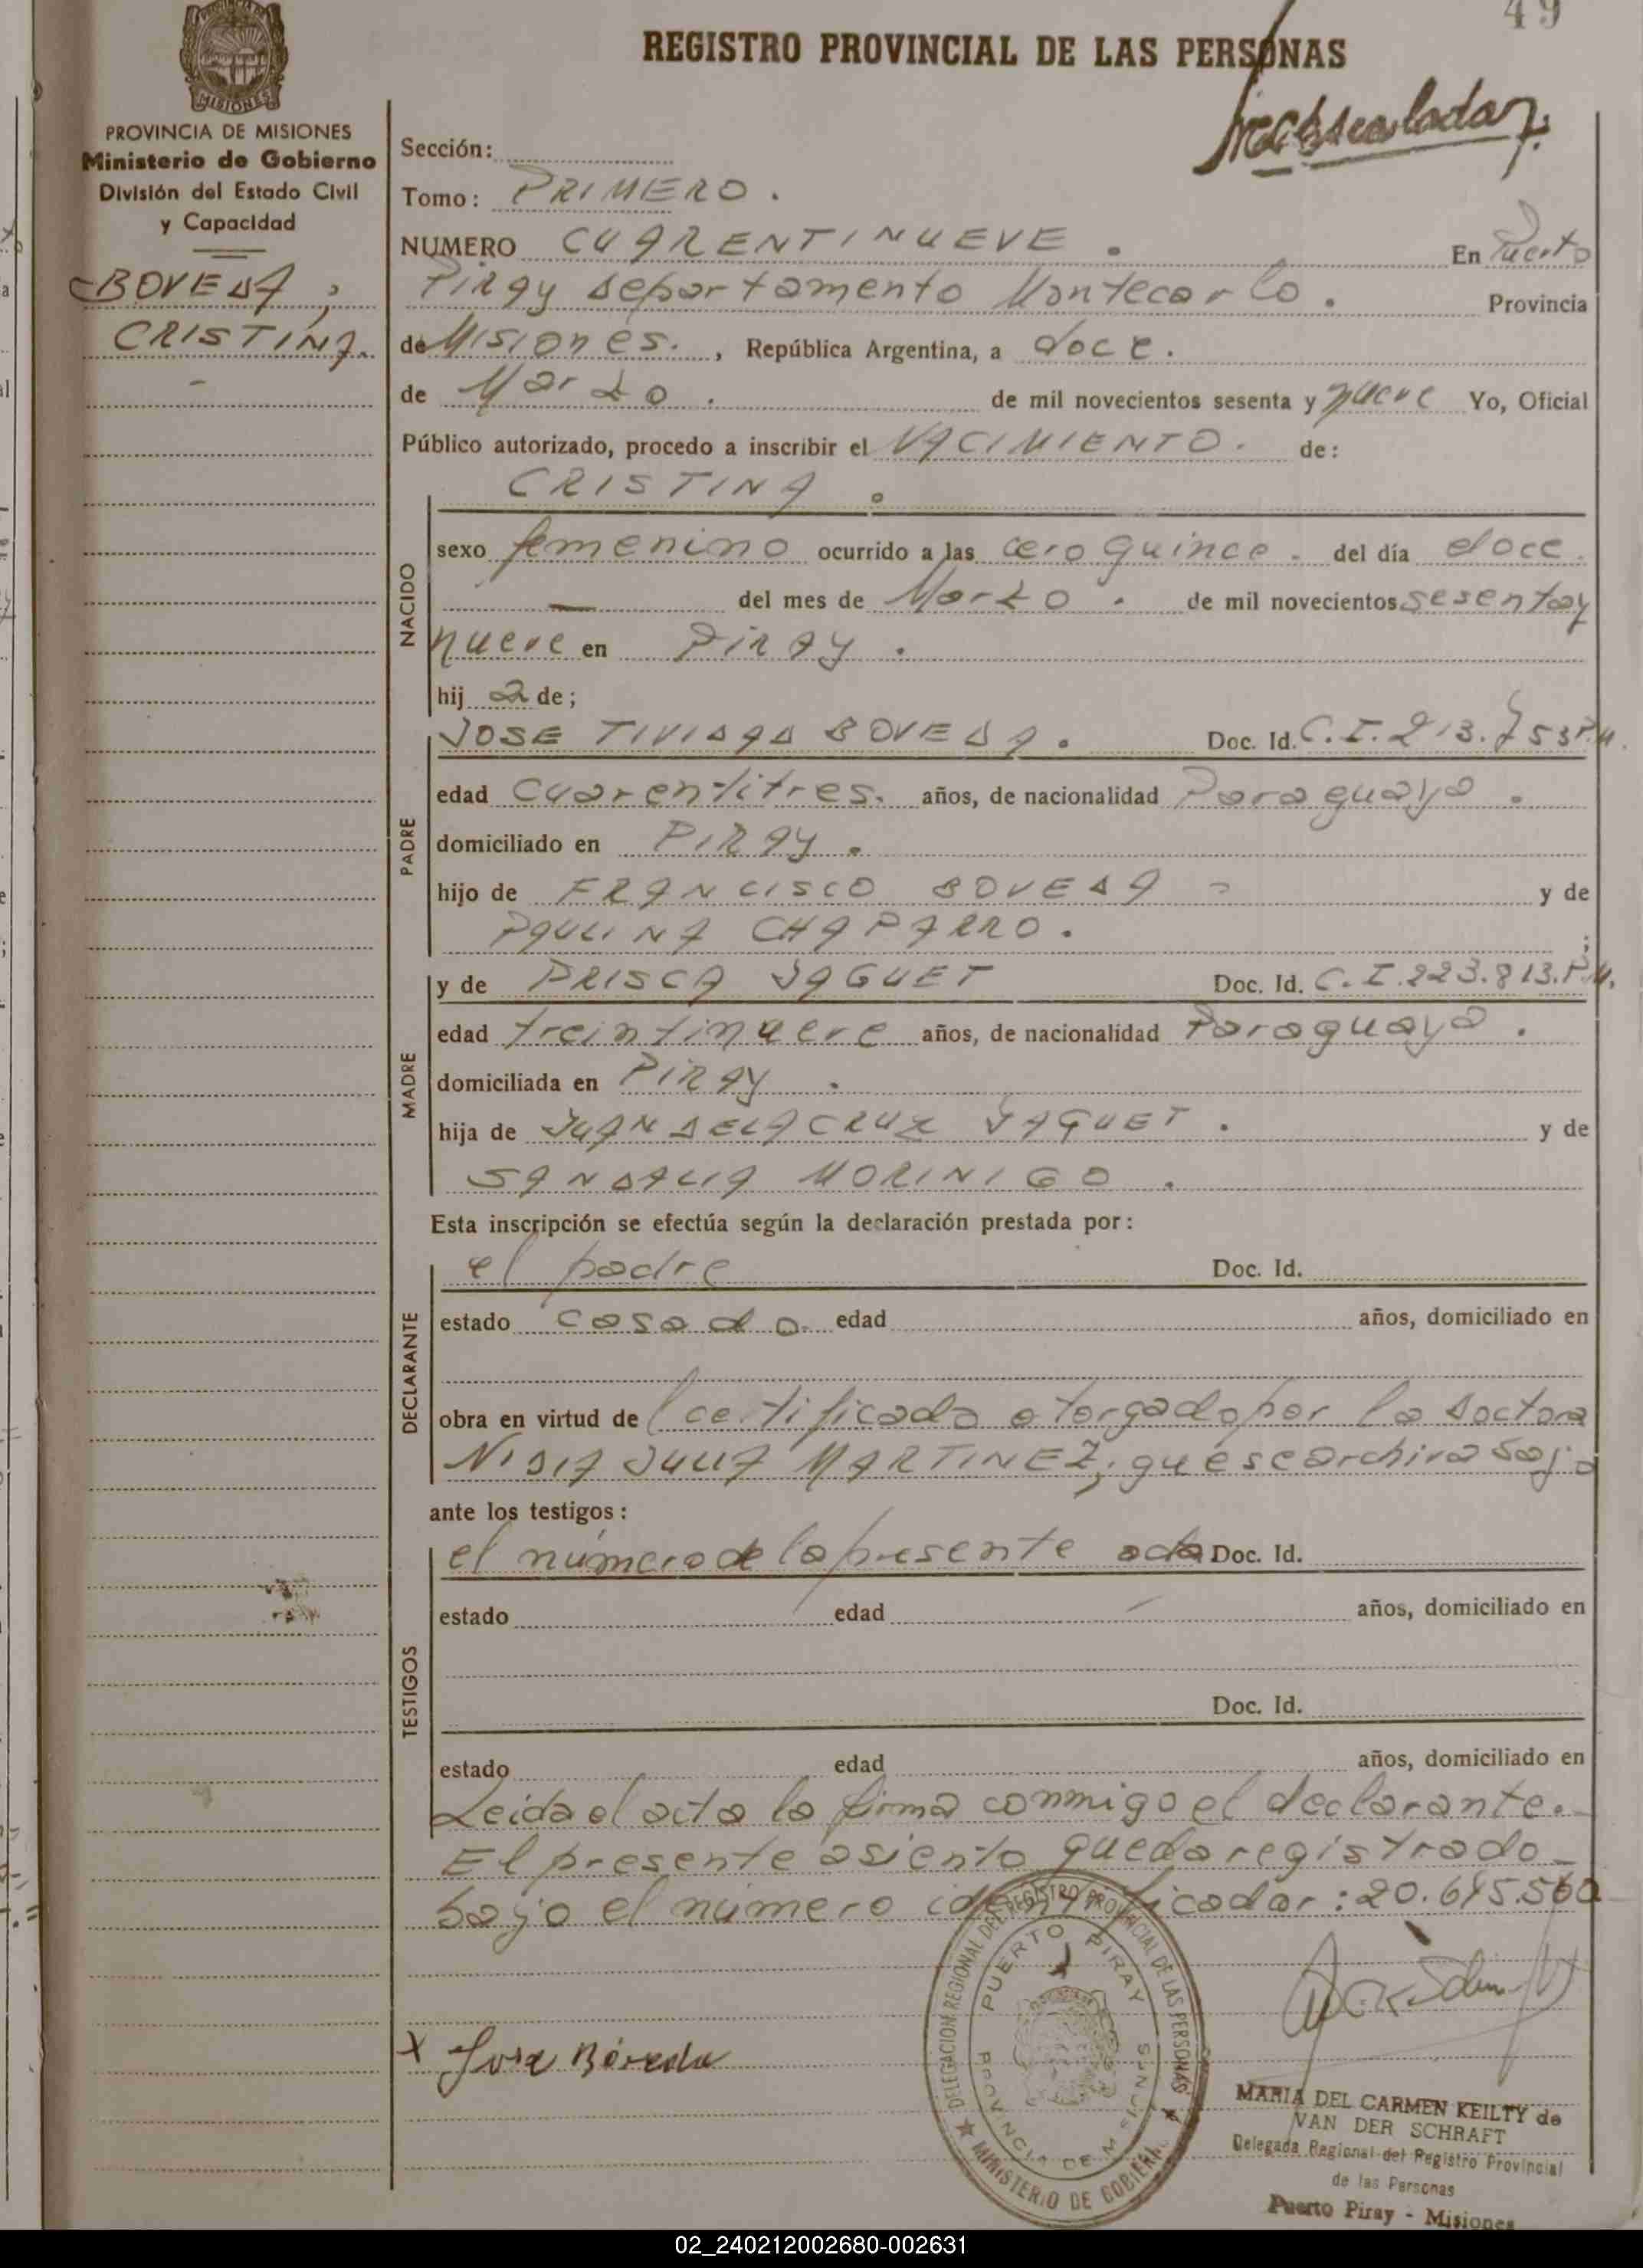 49
REGISTRO PROVINCIAL DE LAS PERSONAS
MISIONES
PROVINCIA DE MISIONES
Ministerio de Gobierno
División del Estado Civil
y Capacidad
BOVEDA,
CRISTINA.
Sección:
Tomo: PRIMERO.
NUMERO CUARENTINUEVE. En Puerto
Piray departamento Montecarlo. Provincia
de Misiones. , República Argentina, a doce.
de Marzo. de mil novecientos sesenta y nueve Yo, Oficial
Público autorizado, procedo a inscribir el NACIMIENTO. de:
CRISTINA.
NACIDO
sexo femenino ocurrido a las cero quince. del día doce.
— del mes de Marzo. de mil novecientos sesenta y
nueve en Piray.
hij a de;
PADRE
JOSE BOVEDA. Doc. Id. C.I. 213.753 P.M.
edad cuarentitres. años, de nacionalidad Paraguaya.
domiciliado en PIRAY.
hijo de FRANCISCO BOVEDA y de
PAULINA CHAPARRO. ;
MADRE
y de PRISCA YAGUET Doc. Id. C.I. 223.813. P.M.
edad treintinueve años, de nacionalidad Paraguaya.
domiciliada en PIRAY.
hija de JUAN DE LA CRUZ YAGUET. y de
SANDALIA MORINIGO.
Esta inscripción se efectúa según la declaración prestada por:
DECLARANTE
el padre Doc. Id.
estado casado. edad años, domiciliado en
obra en virtud de l certificado otorgado por la doctora
NIDIA JULIA MARTINEZ, que se archiva bajo
ante los testigos:
TESTIGOS
el número de la presente acta Doc. Id.
estado edad años, domiciliado en
Doc. Id.
estado edad años, domiciliado en
Leida el acta la firma conmigo el declarante.
El presente asiento queda registrado
bajo el número identificador: 20.695.560
DELEGACION REGIONAL DEL REGISTRO PROVINCIAL DE LAS PERSONAS
PUERTO PIRAY
PROVINCIA DE MISIONES
MINISTERIO DE GOBIERNO
x Jose Bóveda
MARIA DEL CARMEN KEILTY de
VAN DER SCHRAFT
Delegada Regional del Registro Provincial
de las Personas
Puerto Piray - Misiones
02_240212002680-002631